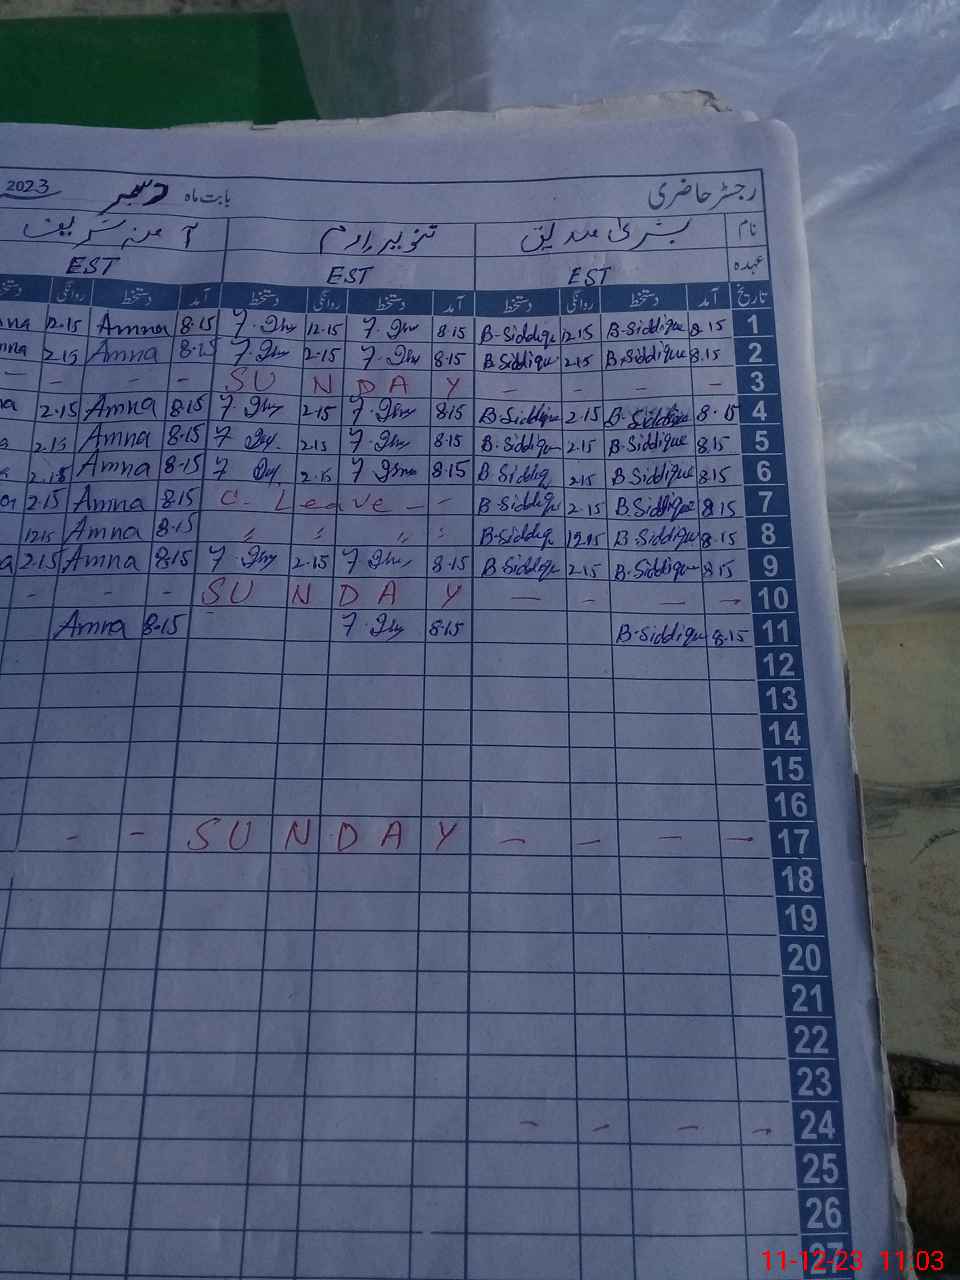 رجسٹر حاضری بابت ماہ دسمبر 2023
نام بشریٰ صدیق تنویر ارم آمنہ شریف
عہدہ EST EST EST
تاریخ آمد دستخط روانگی دستخط آمد دستخط روانگی دستخط آمد دستخط روانگی
1 8.15 B-Siddique 12.15 B-Siddique 8.15 12.15 8.15 Amna 12.15
2 8.15 B.Siddique 2.15 B.Siddique 8.15 2.15 8.15 Amna 2.15
3 - - - - SUNDAY - - - -
4 8.15 B-Siddique 2.15 B-Siddique 8.15 2.15 8.15 Amna 2.15
5 8.15 B-Siddique 2.15 B-Siddique 8.15 2.15 8.15 Amna 2.15
6 8.15 B-Siddique 2.15 B-Siddiq 8.15 2.15 8.15 Amna 2.15
7 8.15 B-Siddique 2.15 B-Siddique C. Leave - - 8.15 Amna 2.15
8 8.15 B-Siddique 12.15 B-Siddique " " " " 8.15 Amna 12.15
9 8.15 B-Siddique 2.15 B-Siddique 8.15 2.15 8.15 Amna 2.15
10 - - - - SUNDAY - - -
11 8.15 B-Siddique 8.15 8.15 Amna
12
13
14
15
16
17 - - - - SUNDAY - -
18
19
20
21
22
23
24 - - - -
25
26
27
11-12-23 11:03